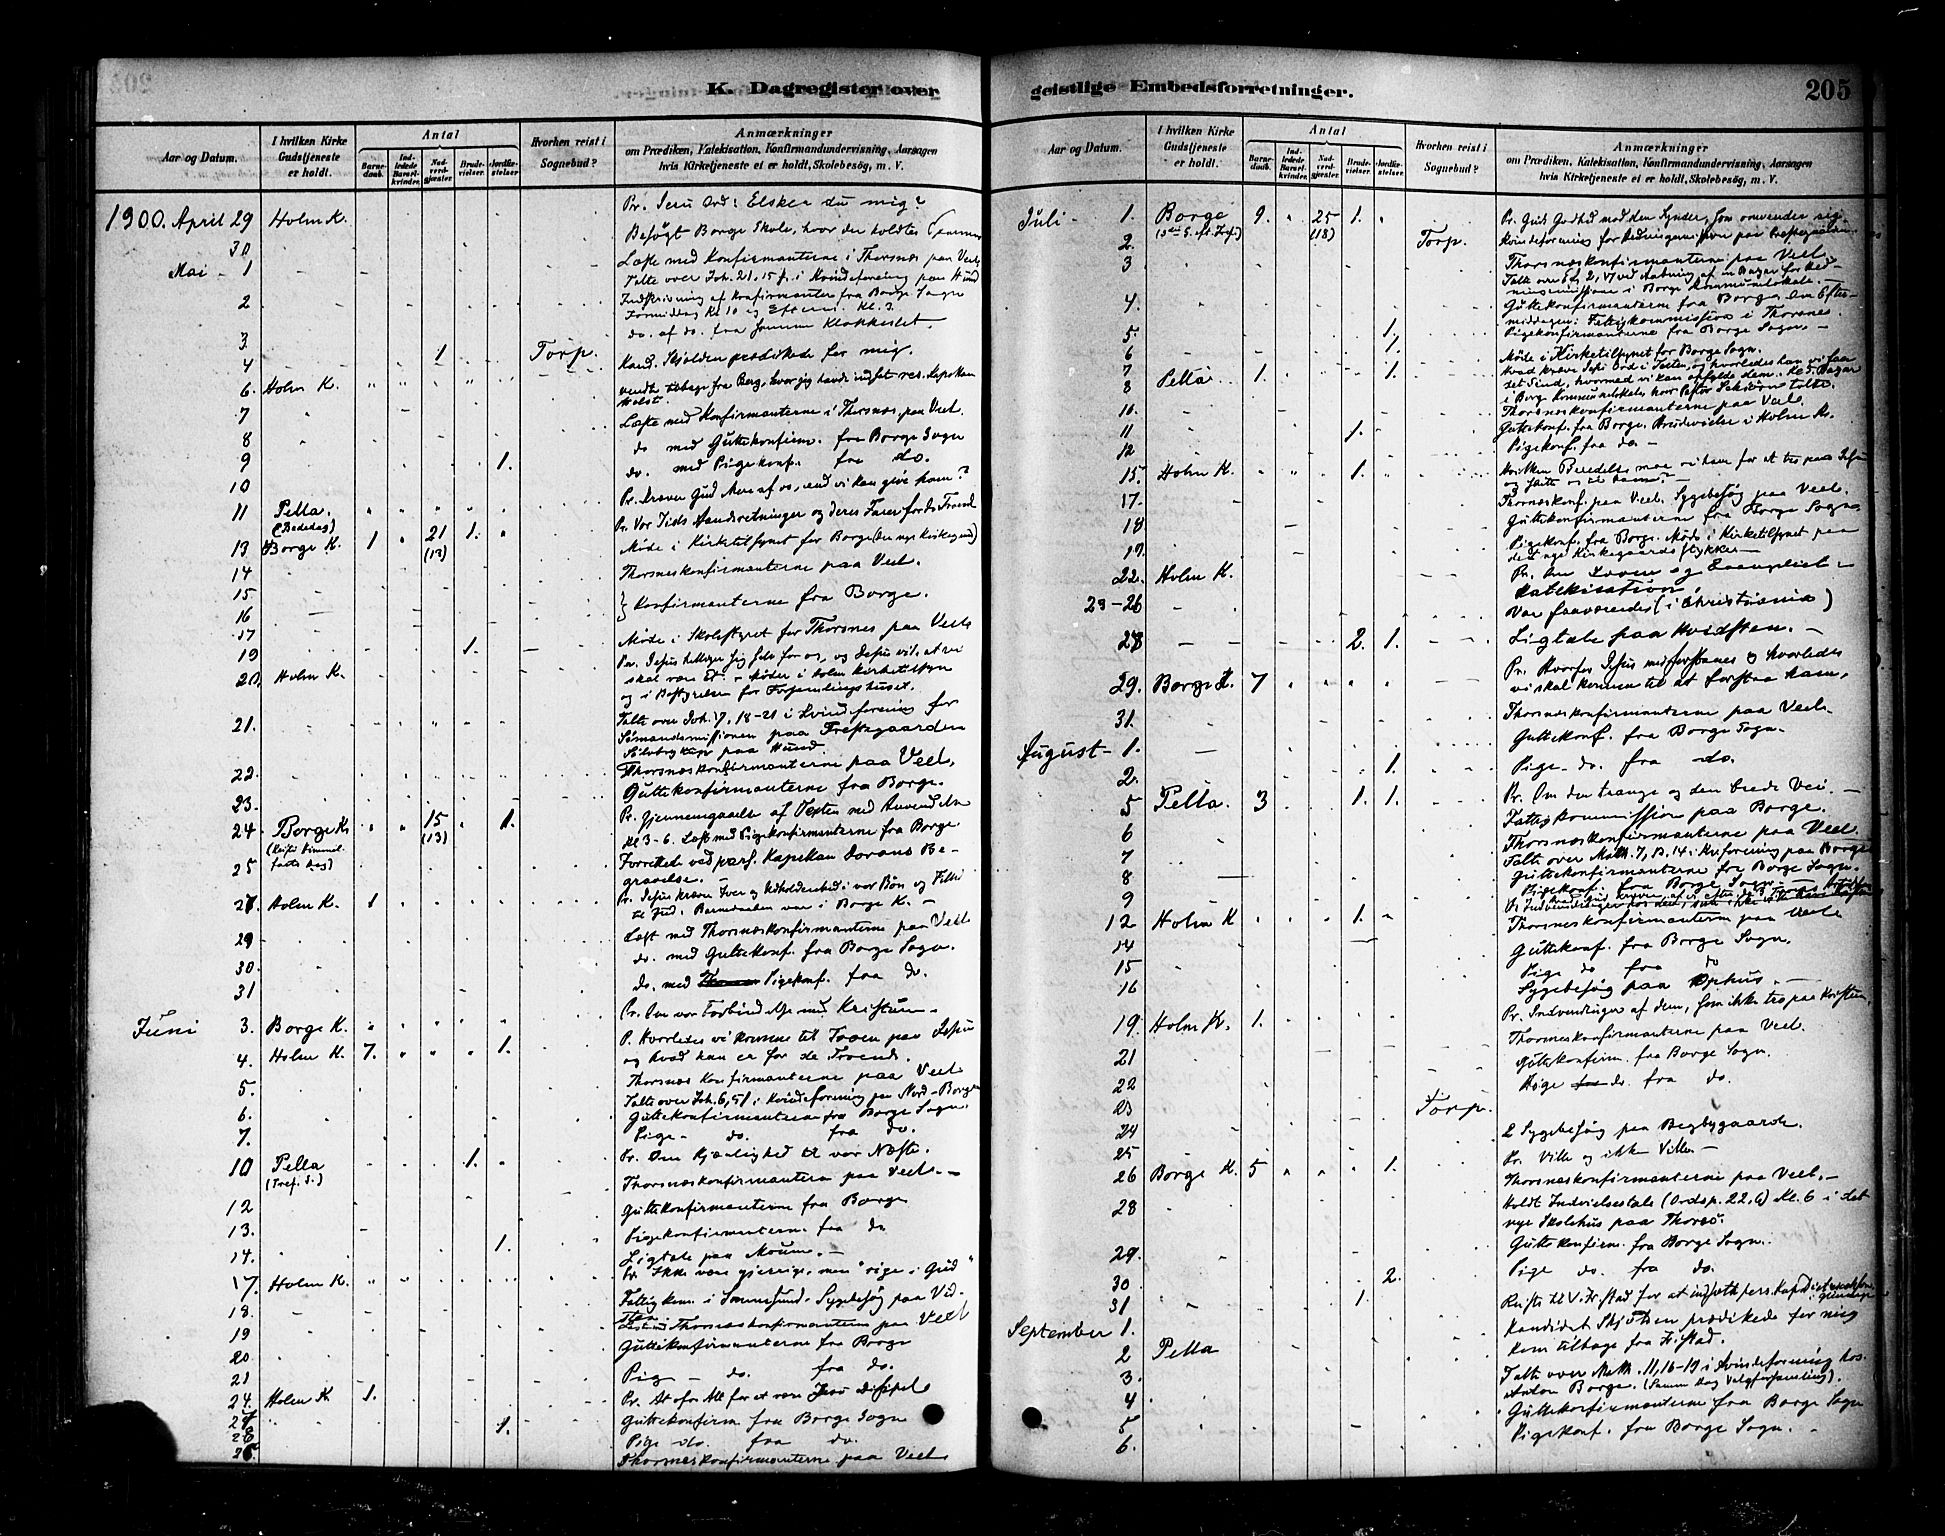 K. Dagregister over
Aar og Datum.
I hvilken Kirke Gudstjeneste er holdt.
Antal
Barne-daab.
Ind-ledede Barsel-kvinder.
Nad-verd-gjæster.
Brude-vielser.
Jordfæ-stelser.
Hvorhen reist i Sognebud?
Anmærkninger
om Prædiken, Katekisation, Konfirmandundervisning, Aarsagen
hvis Kirketjeneste et er holdt, Skolebesøg, m. V.
1900. April 29 Holm K. Pr. Jesu Ord: Elsker du mig?
30 Besøgt Borge Skole, hvor der holdtes Examen
Mai - 1 Læste med Konfirmanterne i Thorsnæs paa Veel.
Talte over Joh. 21. 15 i Kvindeforening paa Hund
2 Indskrivning af Konfirmanter fra Borge Sogn
Formiddag Kl 10 og Efterm. Kl. 3.
3. do. af do. fra
4 1 Torp.
6. Holm K. Kand. Skjolden prædikede for mig.
vendte tilbage fra Berg, hvor jeg havde indsat res. Kapellan
Holst.
7 Læste med Konfirmanterne i Thorsnæs paa Veel.
8 do med Guttekonfirm. fra Borge Sogn
9 1. do. med Pigekonf. fra do.
10
11 Pella. Pr. Kræver Gud Mere af os, end vi kan give ham?
(Bededag)
13 Borge K. 1 21 1. Pr. Vor Tids Aandsretninger og deres Farer for
(13)
14 Møde i Kirketilsynet for Borge (den nye Kirkegaard)
15 Thorsneskonfirmanterne paa Veel.
16 } Konfirmanterne fra Borge.
17
19 1. Møde i Skolestyret for Thorsnes paa Veel
20. Holm K. Pr. Jesus helliger sig selv for os, og Jesus vil, at vi
skal være Et. - Møder i Holm Kirketilsyn
og i Bestyrelsen for Forsamlingshuset.
21. Talte over Joh. 17, 18-21 i Kvindeforening for
Sømandsmissionen paa Prestegaarden
paa Hund.
22. Thorsnæskonfirmanterne paa Veel.
23. Guttekonfirmanterne fra Borge.
24 Borge K. 15 1. Pr. Gjennemgaaelse af Texten med Anvendelse
(Kristi Himmel- (13) Kl 3-6. Læst med Pigekonfirmanterne fra Borge
25 farts Dag) Forrettede ved pers. Kapellan Be-
gravelse.
27. Holm K. 1 Pr. Jesus kræver Iver og Udholdenhed i vor Bøn og Tillid
til Gud. Barnedaaben var i Borge K. -
29 Læst med Thorsnæskonfirmanterne paa Veel
30. do. med Guttekonf. fra Borge Sogn.
31 do. med Pigekonf. fra do.
Juni 3. Borge K. Pr. Om vor Forbindelse med Kristum -
4. Holm K. 7. 1. P. Hvorledes vi komme til Troen paa Jesum
og hvad han er for de Troende.
5. Thorsnæs Konfirmanterne paa Veel
6. Talte over Joh. 6, 51 i Kvindeforening paa Nord-Borge
Guttekonfirmanterne fra Borge Sogn.
7. Pige- do. fra do.
10 Pella 1. Pr. Om Kjærlighed til vor Næste.
(Tref. S.)
12 Thorsnæskonfirmanterne paa Veel. -
13. Guttekonfirmanterne fra Borge
14. 1. Pigekonfirmanterne fra do
Ligtale paa Moum. -
17. Holm K. Pr. Ikke være gjerrige, men "rige i Gud"
18. Fattigkom. i Sannesund. Sygebesøg paa Vid-
sten
19 Thorsnæskonfirmanterne paa Veel
20. Guttekonfirmanterne fra Borge
21 Pige - do. fra do.
24. Holm K 1. Pr. At ofre Alt for at være Jesu Discipel
27 1. Guttekonfirm. fra Borge Sogn
28 Pige do. fra do.
26. Thorsneskonfirmanterne paa Veel

geistlige Embedsforretninger.
205
Aar og Datum.
I hvilken Kirke Gudstjeneste er holdt.
Antal
Barne-daab.
Ind-ledede Barsel-kvinder.
Nad-verd-gjæster.
Brude-vielser.
Jordfæ-stelser.
Hvorhen reist i Sognebud?
Anmærkninger
om Prædiken, Katekisation, Konfirmandundervisning, Aarsagen
hvis Kirketjeneste et er holdt, Skolebesøg, m. V.
Juli - 1. Borge 9. 25 1. Pr. Guds Godhed mod den Synder, som omvender sig.
(3die S. eft. Tref.) (18)
2. Torp. Kvindeforening for Hedningemissionen paa Prestegaarden.
3 Thorsnæskonfirmanterne paa Veel.
Talte over Ef. 2, 17 ved Aabning af en Bazar for Hed-
ningemissionen i Borge Kommunelokale. -
4. Guttekonfirmanterne fra Borge. Om Efter-
middagen: Fattigkommission i Thorsnes.
5. 1. Pigekonfirmanterne fra Borge Sogn. -
6 1.
7 1. Møde i Kirketilsynet for Borge Sogn.
8 Pella 1. Hvad kræve Jesu Ord i Texten, og hvorledes kan vi faa
det Sind, hvormed vi kan opfylde dem. Kl. 5 Bazar
i Borge Kommunelokale, hvor Pastor talte.
10. Thorsnæskonfirmanterne paa Veel.
11 1. Guttekonf. fra Borge. Brudevielse i Holm K.
12 Pigekonf. fra do -
15. Holm K. 1. Hvilken Beredelse maa vi have for at tro paa Jesum
17. Thorsnæskonf. paa Veel. Sygebesøg paa Veel.
18 Guttekonfirmanterne fra Borge Sogn
19. Pigekonf. fra Borge. Møde i Kirketilsynet paa
det nye Kirkegaards Stykke -
22. Holm K. Pr. Om Loven og Evangeliet -
Katekisation.
23-26 Var fraværende (i Christiania)
28 2. 1. Ligtale paa Hvidsten. -
29. Borge K. 7 Pr. Hvorfor Jesus misforstaaes og hvorledes
vi skal komme til at forstaa ham.
31. Thorsnæskonfirmanterne paa Veel.
August - 1. Guttekonf. fra Borge Sogn.
2. 1. Pige- do. fra do.
5 Pella. 3 1. 1. Pr. Om den trange og den brede Vei. -
6 Fattigkommission paa Borge.
7 Thorsnæskonfirmanterne paa Veel
Talte over Math. 7, 13. 14 i Kv.forening paa Borge
8 Guttekonfirmanterne fra Borge Sogn.
9 Pigekonf. fra Borge Sogn. -
12 Holm K 1.
14 Thorsnæskonfirmanterne paa Veel
15 Guttekonf. fra Borge Sogn.
16 Pige do fra do
Sygebesøg paa Ophus. -
19. Holm K. 1. Pr. Indvendinger af dem, som ikke tro paa Kristum
21 Thorsneskonfirmanterne paa Veel.
22 Guttekonfirm. fra Borge Sogn.
23 Torp. Pige do. fra do.
24
25 2 Sygebesøg paa Begbygaarde.
26 Borge K. 5 1. Pr. Ville og ikke Ville -
28 Thorsnæskonfirmanterne paa Veel. -
Holdt Indvielsestale (Ordsp. 22,6) Kl. 6 i det
nye Skolehus paa Thorsø.
29. Guttekonfirm. fra Borge Sogn.
30 2. Pige do. fra do.
31 1. Reiste til Fr.stad for at indsætte pers. Kap.
September 1.
2 Pella Kandidat Skjolden prædikede for mig
3. Kom tilbage fra Fr.stad.
4 Talte over Math. 11, 16-19 i Kvindeforening hos
Anton Borge. (Samme Dag Valgforsamling).
5 Guttekonfirmanterne fra Borge Sogn
6. Pigekonf. fra Borge Sogn. -